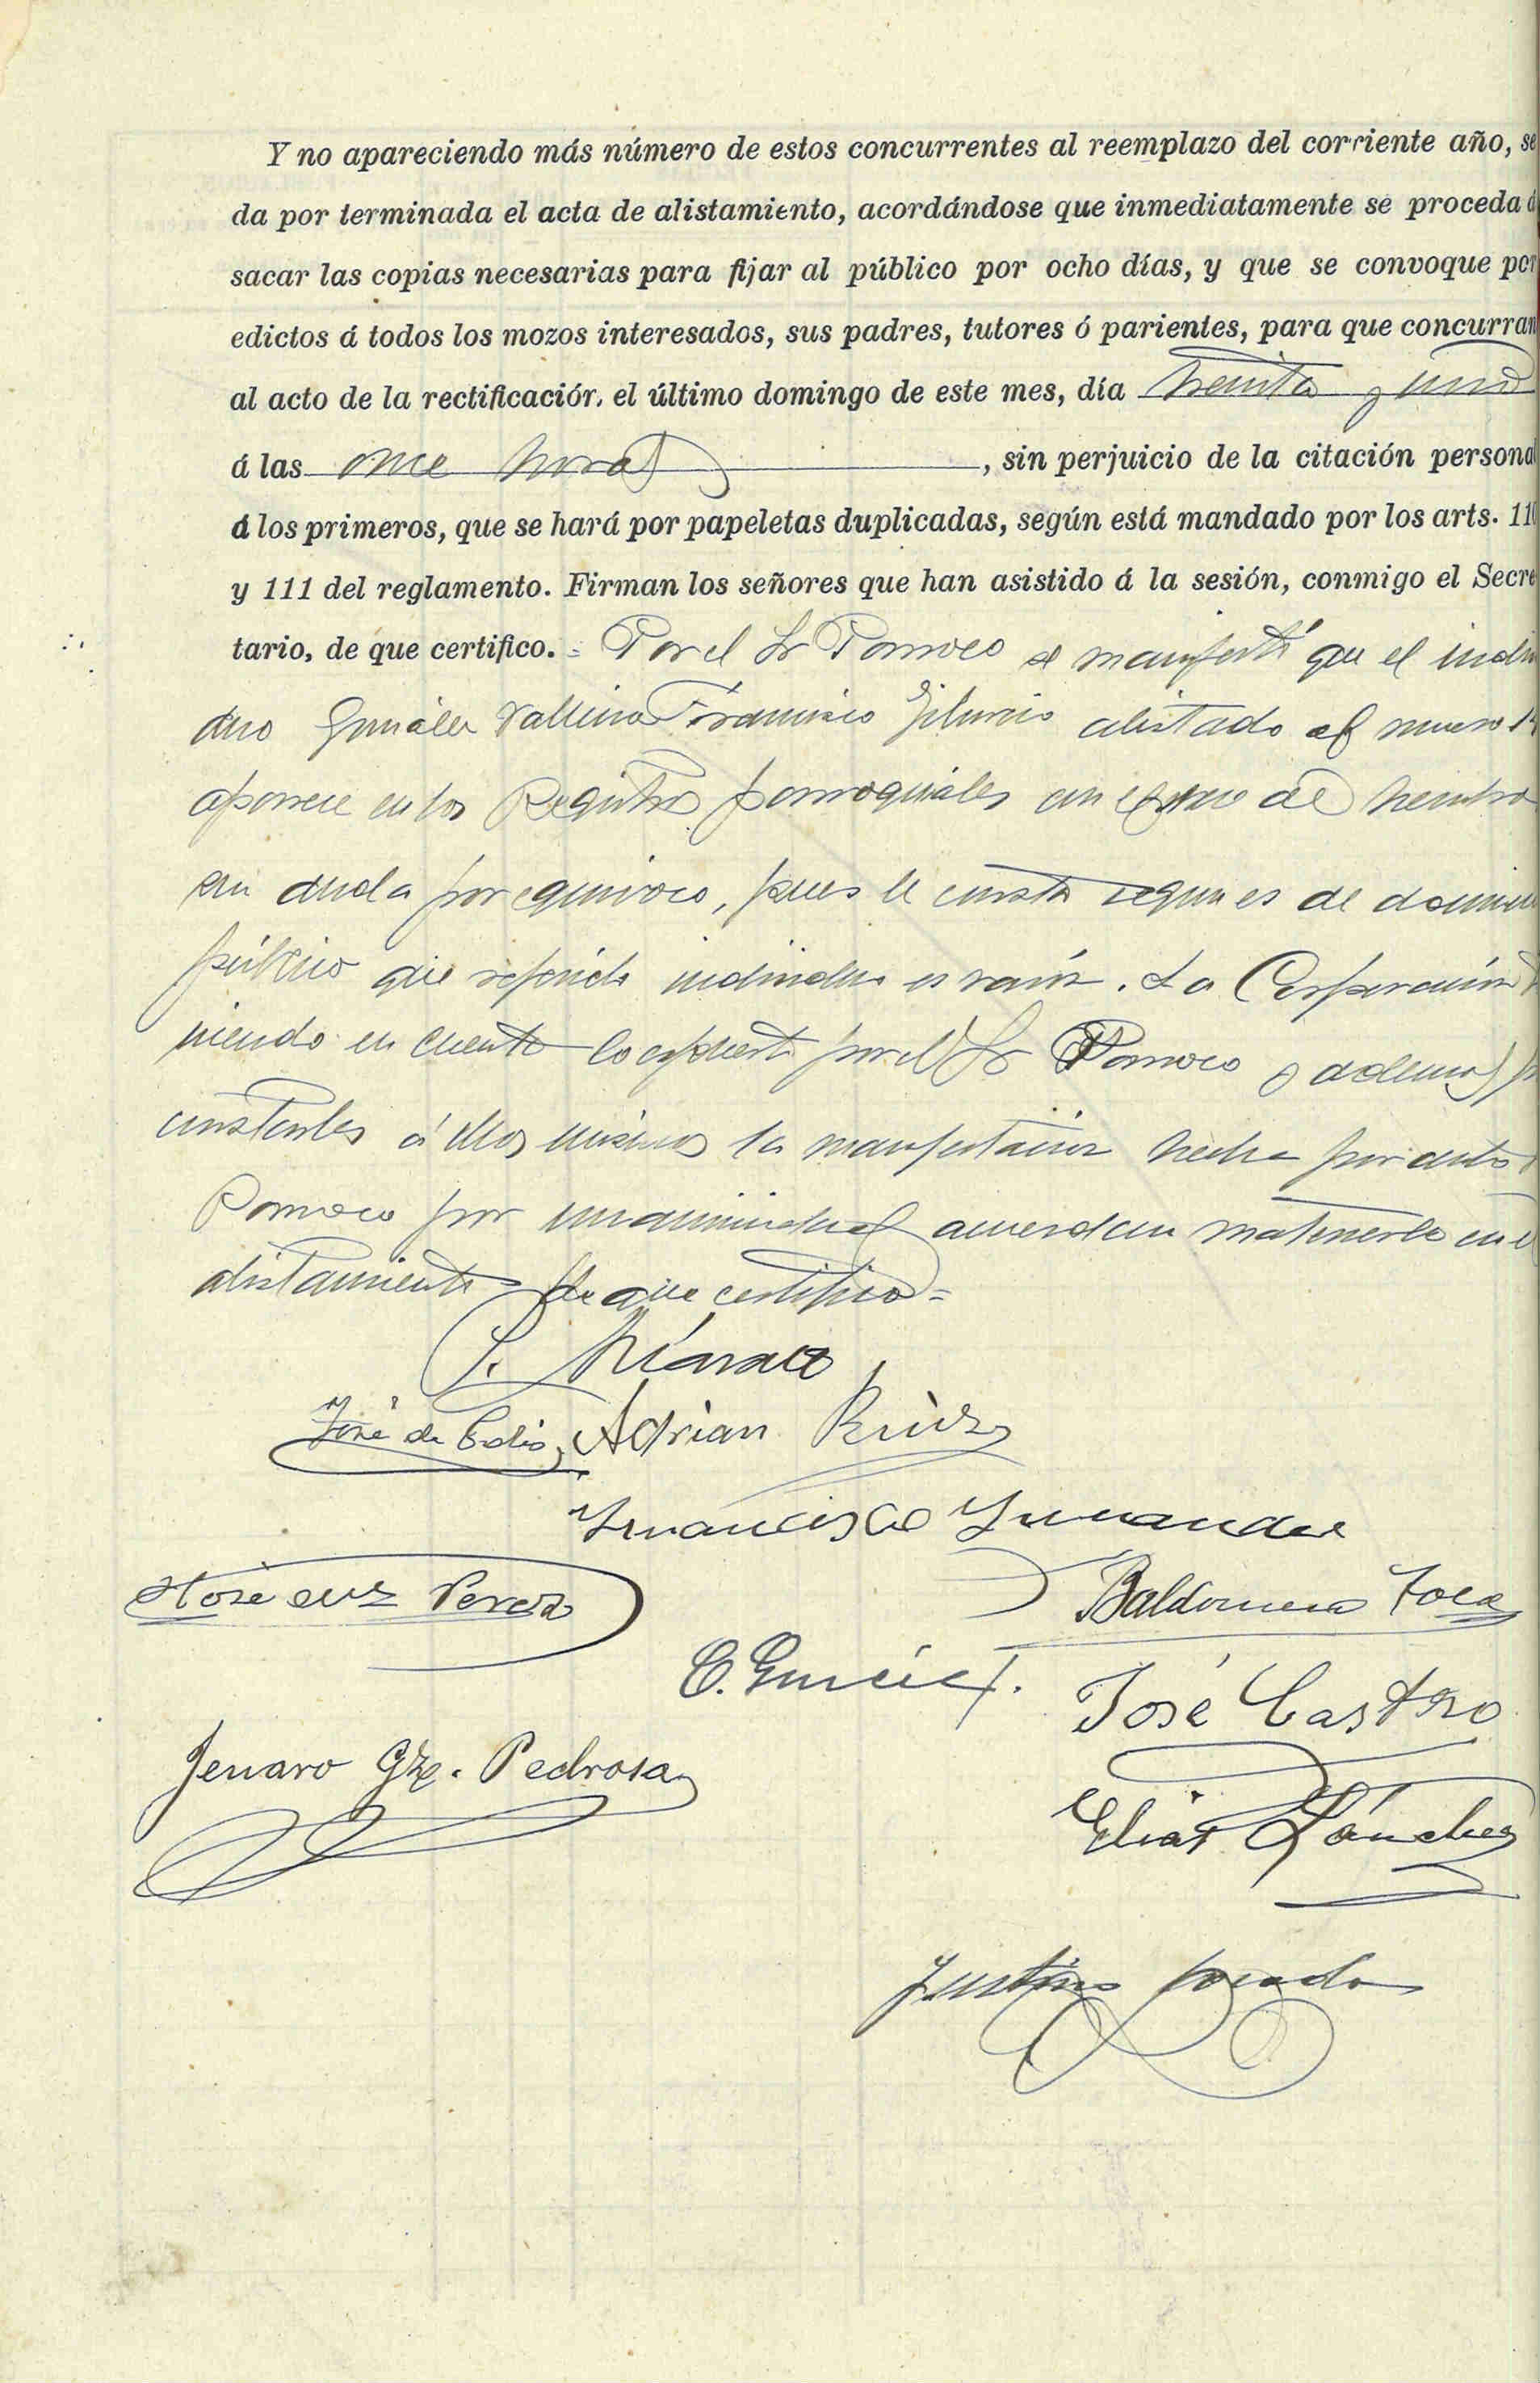 Y no apareciendo más número de estos concurrentes al reemplazo del corriente año, se
da por terminada el acta de alistamiento, acordándose que inmediatamente se proceda á
sacar las copias necesarias para fijar al público por ocho días, y que se convoque por
edictos á todos los mozos interesados, sus padres, tutores ó parientes, para que concurran
al acto de la rectificación, el último domingo de este mes, día treinta y uno
á las once horas, sin perjuicio de la citación persona
á los primeros, que se hará por papeletas duplicadas, según está mandado por los arts. 110
y 111 del reglamento. Firman los señores que han asistido á la sesión, conmigo el Secre
tario, de que certifico. = Por el Sr Parroco se manifestó que el indivi
duo González Vallina Francisco Gilverio alistado al numero
aparece en los Registros parroquiales con el sexo de hembra
sin duda por equivoco, pues le consta segun es de dominio
público que referido individuo es varón. La Corporación te
niendo en cuenta lo expuesto por el Sr Parroco y ademas
constarles á ellos mismos la manifestación hecha por dicho
Parroco por unanimidad acuerdan matenerlo en el
alistamiento de que certifico =
José de Adrian Ruiz
Francisco Fernandez
Jose Perez
Baldomero Toca
C. García
José Castro
Jenaro Gze. Pedrosa
Elias Sánchez
Justino Posada